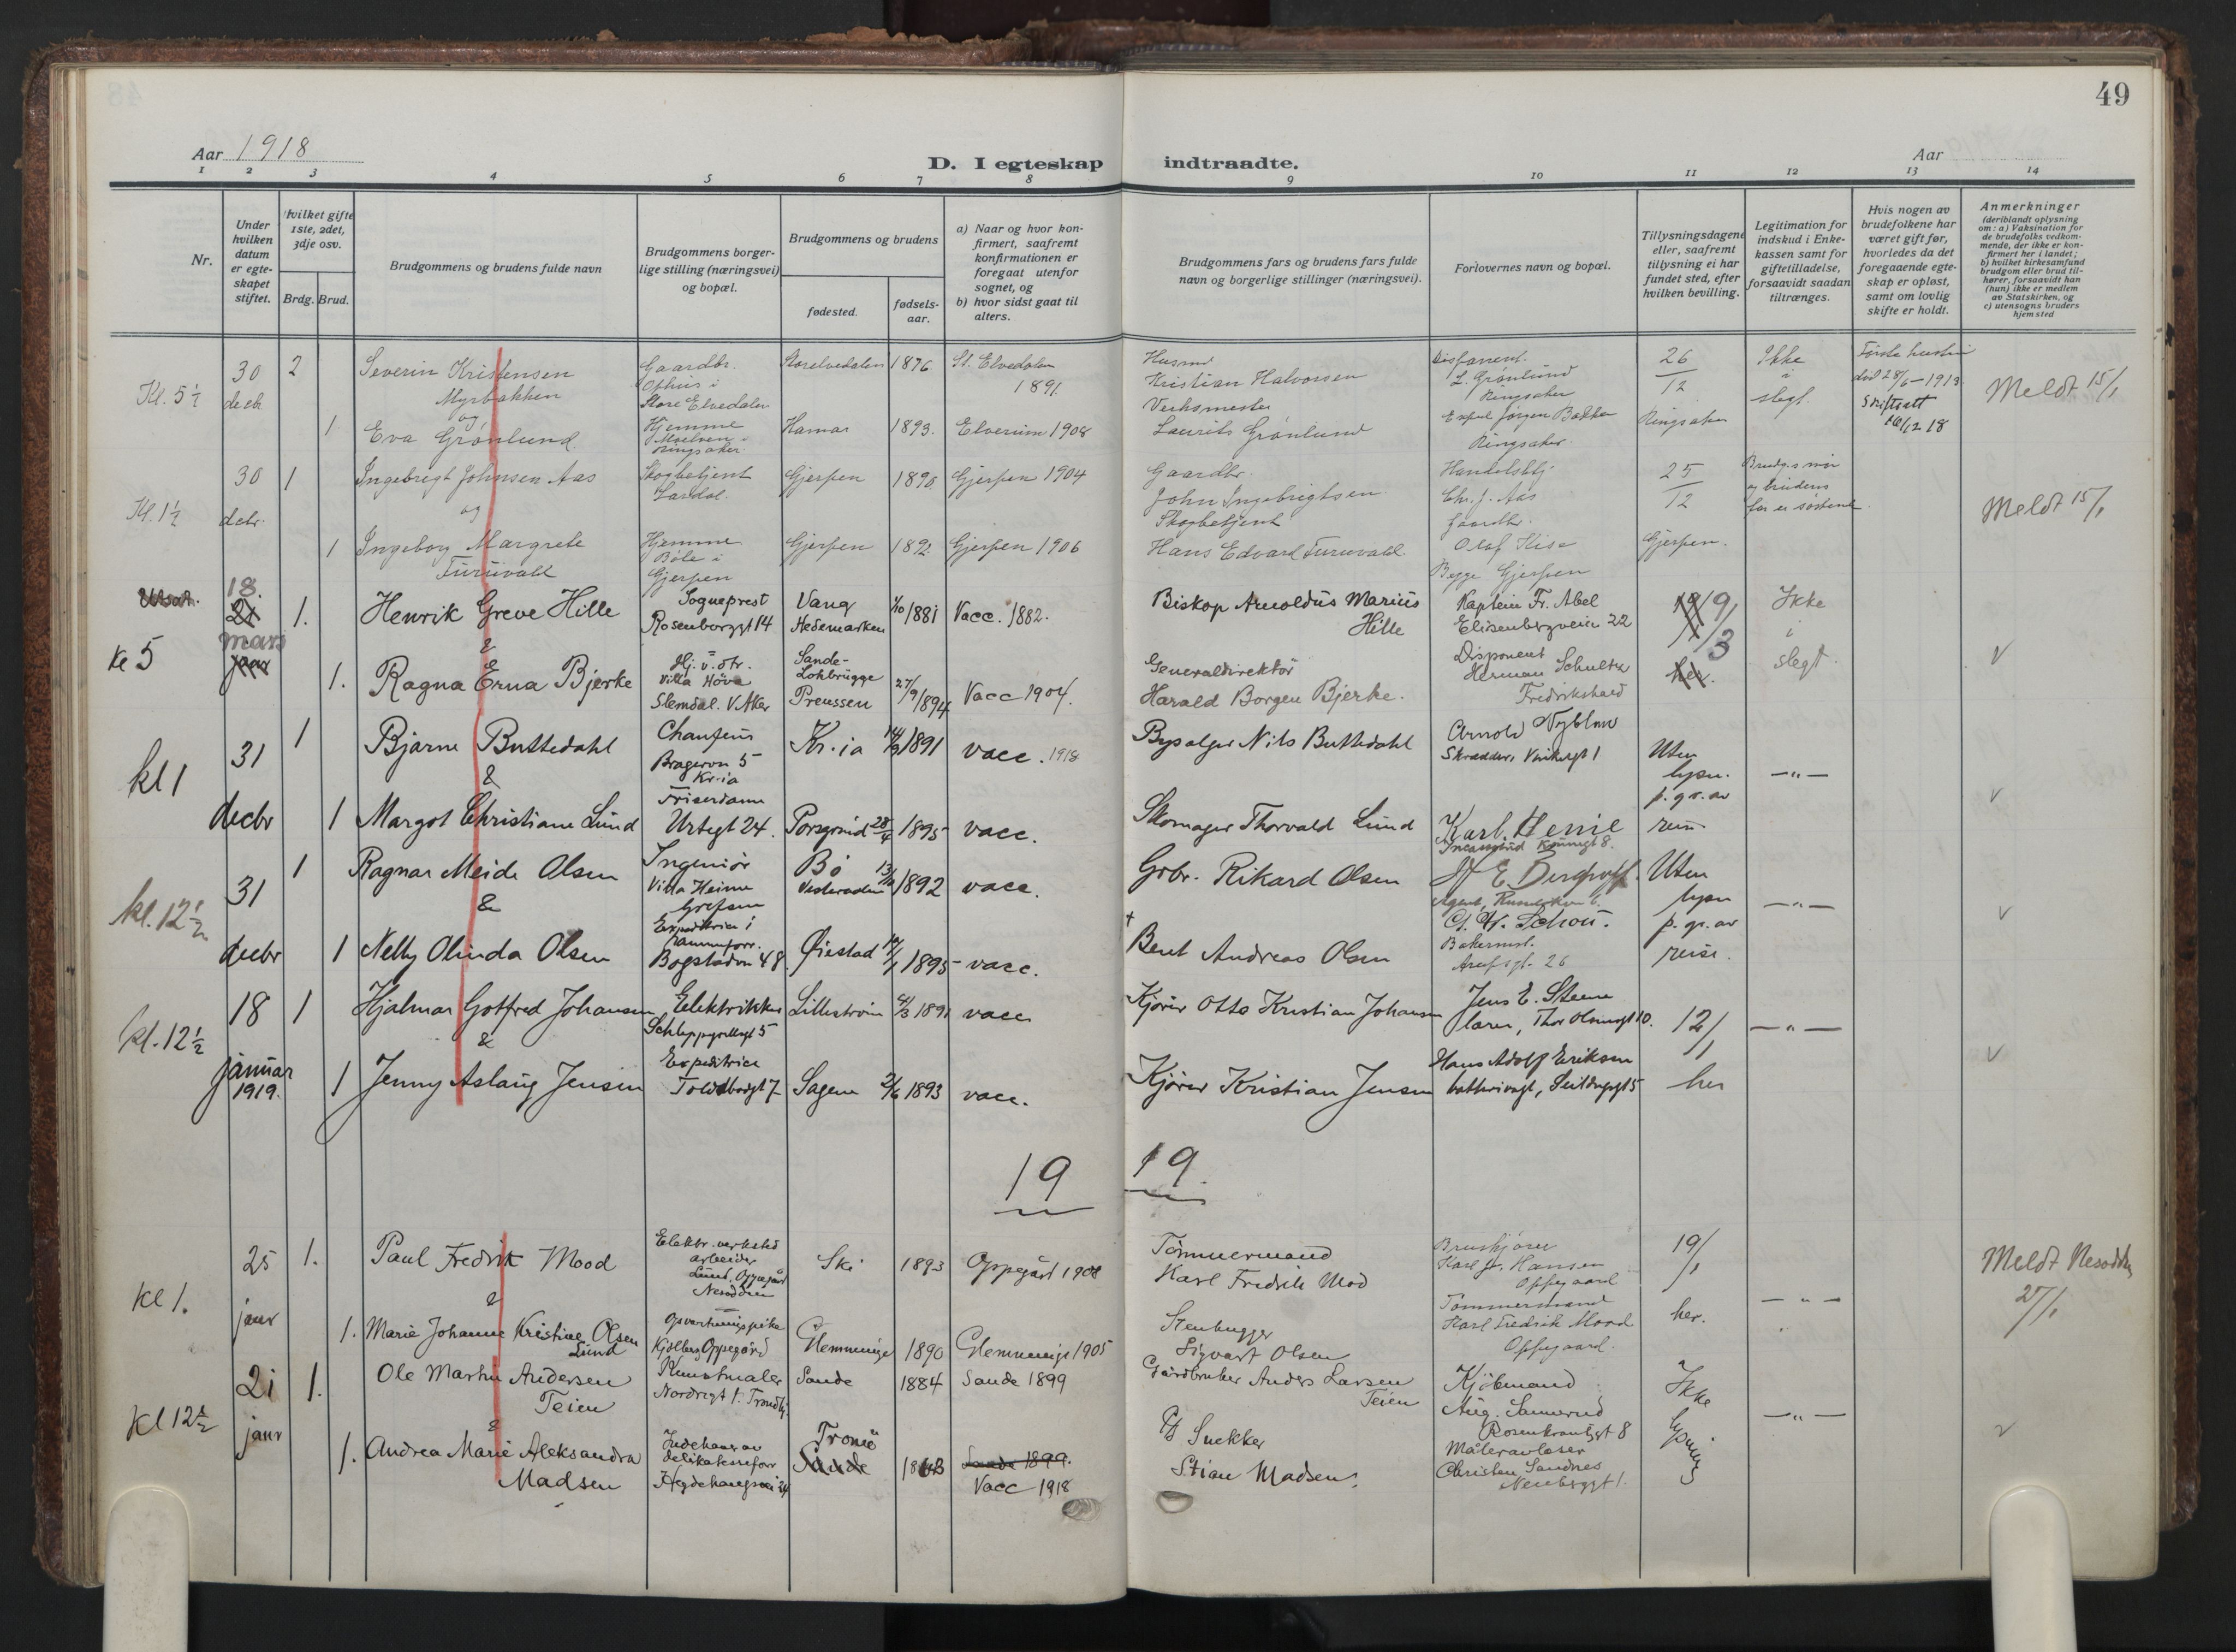 49
Aar 1918
D. I egteskap indtraadte.
Aar
1 2 3 4 5 6 7 8 9 10 11 12 13 14
Nr.
Under hvilken datum er egteskapet stiftet.
Hvilket gifte 1ste, 2det, 3dje osv.
Brdg. Brud.
Brudgommens og brudens fulde navn
Brudgommens borgerlige stilling (næringsvei) og bopæl.
Brudgommens og brudens
fødested.
fødselsaar.
a) Naar og hvor konfirmert, saafremt konfirmationen er foregaat utenfor sognet, og
b) hvor sidst gaat til alters.
Brudgommens fars og brudens fars fulde navn og borgerlige stillinger (næringsvei).
Forlovernes navn og bopæl.
Tillysningsdagene eller, saafremt tillysning ei har fundet sted, efter hvilken bevilling.
Legitimation for indskud i Enkekassen samt for giftetilladelse, forsaavidt saadan tiltrænges.
Hvis nogen av brudefolkene har været gift før, hvorledes da det foregaaende egteskap er opløst, samt om lovlig skifte er holdt.
Anmerkninger
(deriblandt oplysning om: a) Vaksination for de brudefolks vedkommende, der ikke er konfirmert her i landet;
b) hvilket kirkesamfund brudgom eller brud tilhører, forsaavidt han (hun) ikke er medlem av Statskirken, og
c) utensogns bruders hjemsted
Kl. 5½
30 decbr
2
Severin Kristensen
Myrbakken
og
Gaardbr.
Ophus i
Store Elvedalen
Storelvedalen
1876
St. Elvedalen
1891
Husmd
Kristian Halvorsen
Disponent.
L. Grønlund
Ringsaker
26
12
Ikke
i
slegt.
Første hustru
død 28/6-1913
Skifteatt
Meldt 15/1
1
Eva Grønlund
Hjemme
Moelven
Ringsaker
Hamar
1893.
Elverum 1908
Verksmester
Laurits Grønlund
Jørgen Bakke
Ringsaker.
Ringsaker
Kl. 1½
30 decbr.
1
Ingebrigt Johnsen Aas
og
Skogbetjent
Lardal.
Gjerpen
1890
Gjerpen 1904
Gaardbr.
John Ingebrigtsen
Chr. J. Aas
25
12
Brudg.s mor
og brudens
far er søskende
Meldt 15/1
1
Ingeborg Margrete
Furuvald
Hjemme
Bøle i
Gjerpen
Gjerpen
1892
Gjerpen 1906
Skogbetjent
Hans Edvard Furuvald.
Gaardbr.
Olaf Kise
Begge Gjerpen
Gjerpen.
Kl 5
18.
mars
1.
Henrik Greve Hille
&
Sogneprest
Rosenborggt 14
Vang
Hedemarken
1/10 1881
Vacc. 1882.
Biskop Arnoldus Marius
Hille
Kaptein Fr. Abel
Elisenbergveien 22
9/3
Ikke
i
slegt.
V
1.
Ragna Erna Bjerke
Hj. u. str.
Villa Höva
Slemdal. V. Aker
Sande-
Lohbrügge
Preussen
27/9 1894
Vacc 1904.
Generaldirektör
Harald Borgen Bjerke.
Disponent
Herman Schultz
Fredrikshald
her.
kl 1
31
decbr
1
Bjarne Buttedahl
&
Chauffeur
Kr.ia
Kr.ia
1891
vacc. 1918
Nils Buttedahl
Arnold Nyblom
Skrædder,
Uten
lysn.
p. gr. av
reise
V
1
Margot Christiane Lund
Friserdame
Urtegt 24.
Porsgrund
28/4 1895
vacc.
Skomager Thorvald Lund
Karl. Henie
kl. 12½
31
decbr
1
Ragnar Meide Olsen
&
Ingeniör
Villa Heime
Grefsen
Bö
Vesteraalen
1892
vacc.
Grbr. Rikard Olsen
Agent,
Uten
lysn
p. gr. av
reise.
V
1
Nelly Olinda Olsen
Expeditrice i
Bogstadvn 48
Öiestad
1895
vacc.
† Bent Andreas Olsen
Schou.
Bakermst.
kl. 12½
18
januar
1919.
1
Hjalmar Gotfred Johansen
&
Elektriker
Schleppegrellsgt 5
Lilleström
1891
vacc
Kjörer Otto Kristian Johansen
Jens E. Steene
lærer, Thor Olsensgt 10.
12/1
her
V
1
Jenny Aslaug Jensen
Expeditrice
Toldbodgt 7
Sagene
2/6 1893
vacc.
Kjörer Kristian Jensen
Hans Adolf Eriksen
batterivagt, Seilduksgt 5
19 19
kl 1.
25
janr
1.
Paul Fredrik Mood
&
Elektr. verksted
arbeider
Lund, Oppegård
Nesodden
Ski
1893
Oppegård 1908
Tömmermand
Karl Fredrik Mod
Bruskjører
Karl Fr. Hansen
Oppegaard
19/1
her.
Meldt Nesodden
27/1
1.
Marie Johanne Kristine Olsen
Lund
Opvartningspike
Kjölberg Oppegård
Glemminge
1890
Glemminge 1905
Stenhugger
Sigvart Olsen
Tømmermand
Karl Fredrik Mood
Oppegaard.
Kl 12½
21
janr
1.
Ole Martin Andersen
Teien
&
Kunstmaler
Sande
1884
Sande 1899
Gårdbruker Anders Larsen
Teien
Kjöbmand
Aug. Samerud
Rosenkrantzgt 8
Ikke
lysning
V
1.
Andrea Marie Aleksandra
Madsen
Indehaver av
delikatesseforr
Hegdehaugsvei 24
Tromö
Sande
Sande 1899.
Vacc 1918
Snekker
Stian Madsen.
Måleravlæser
Christen Sandnes